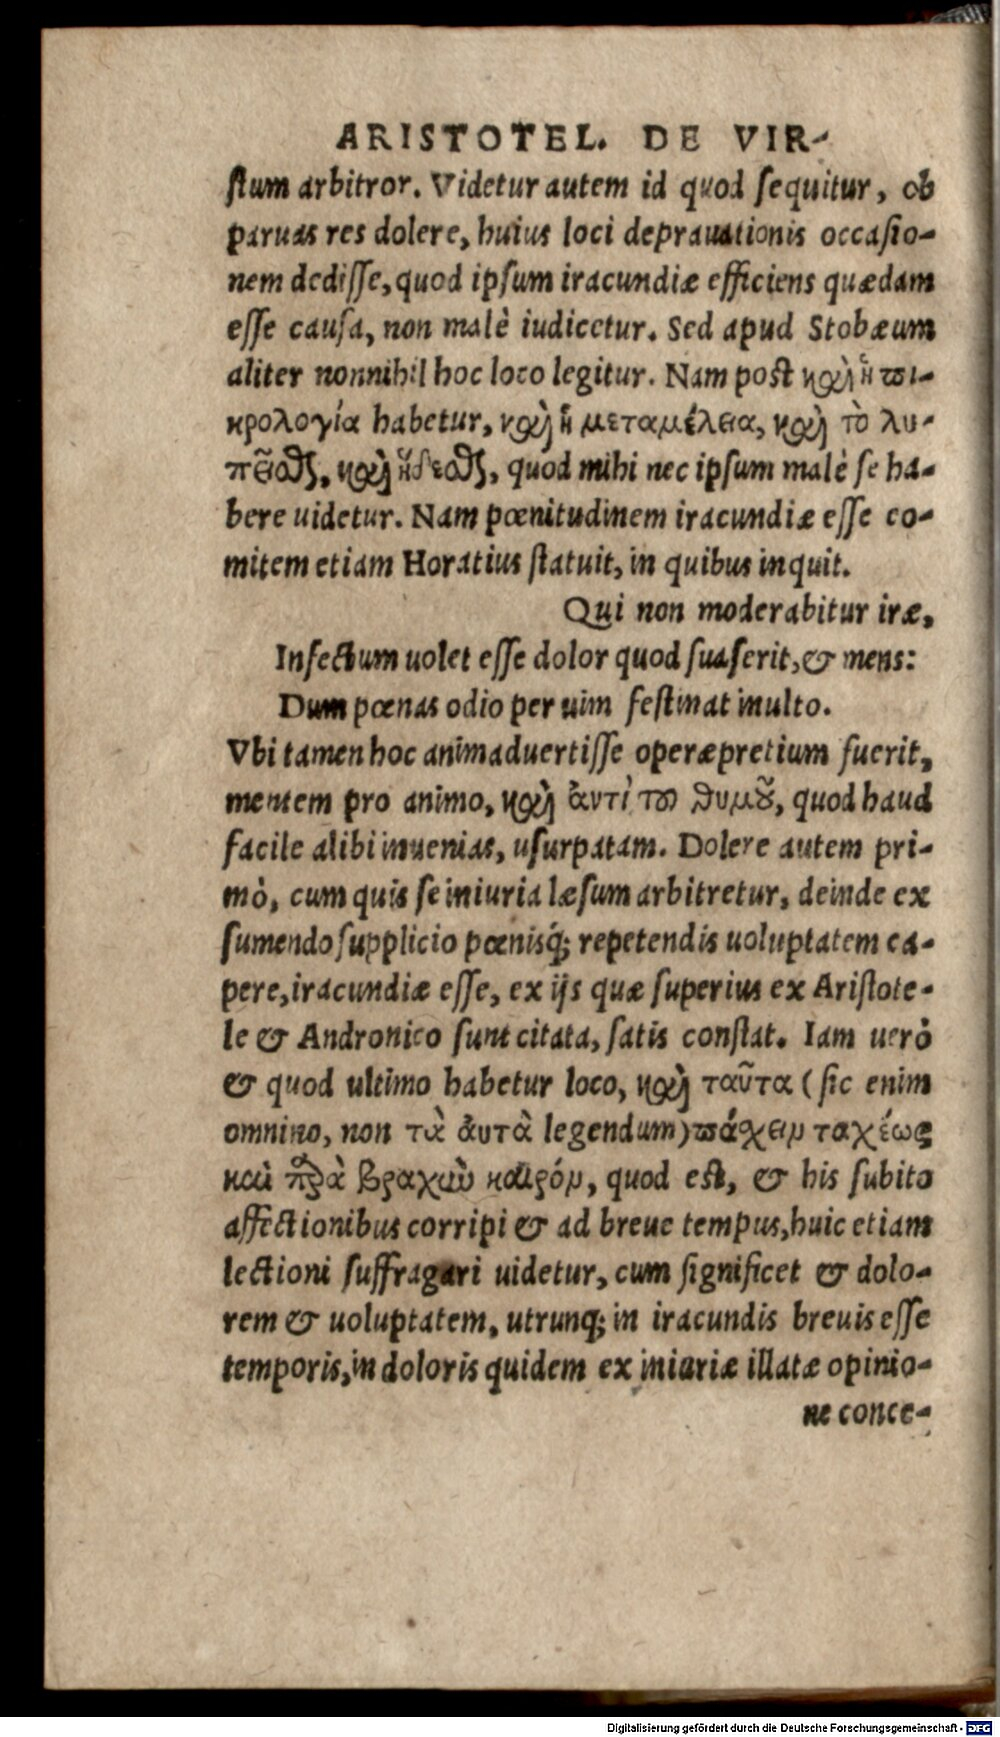 ARISTOTEL. DE VIR-
stum arbitror. Videtur autem id quod sequitur, ob
paruas res dolere, huius loci deprauationis occasio-
nem dedisse, quod ipsum iracundiæ efficiens quædam
esse causa, non malè iudicetur. Sed apud Stobæum
aliter nonnihil hoc loco legitur. Nam post καὶ ἡ πι-
κρολογία habetur, καὶ ἡ μεταμέλεια, καὶ τὸ λυ-
πεῖσθαι, καὶ ἥδεσθαι, quod mihi nec ipsum malè se ha-
bere uidetur. Nam pœnitudinem iracundiæ esse co-
mitem etiam Horatius statuit, in quibus inquit.
Qui non moderabitur iræ,
Infectum uolet esse dolor quod suaserit, & mens:
Dum pœnas odio per uim festinat inulto.
Vbi tamen hoc animaduertisse operæpretium fuerit,
mentem pro animo, καὶ ἀντὶ τοῦ θυμοῦ, quod haud
facile alibi inuenias, usurpatam. Dolere autem pri-
mò, cum quis se iniuria læsum arbitretur, deinde ex
sumendo supplicio pœnisq́; repetendis uoluptatem ca-
pere, iracundiæ esse, ex ijs quæ superius ex Aristote-
le & Andronico sunt citata, satis constat. Iam uerò
& quod ultimo habetur loco, καὶ ταῦτα (sic enim
omnino, non τὰ ἀυτὰ legendum) πάχειν ταχέως
καὶ παρὰ βραχὺν καιρόν, quod est, & his subito
affectionibus corripi & ad breue tempus, huic etiam
lectioni suffragari uidetur, cum significet & dolo-
rem & uoluptatem, utrunq; in iracundis breuis esse
temporis, in doloris quidem ex iniuriæ illatæ opinio-
ne conce-
Digitalisierung gefördert durch die Deutsche Forschungsgemeinschaft - DFG